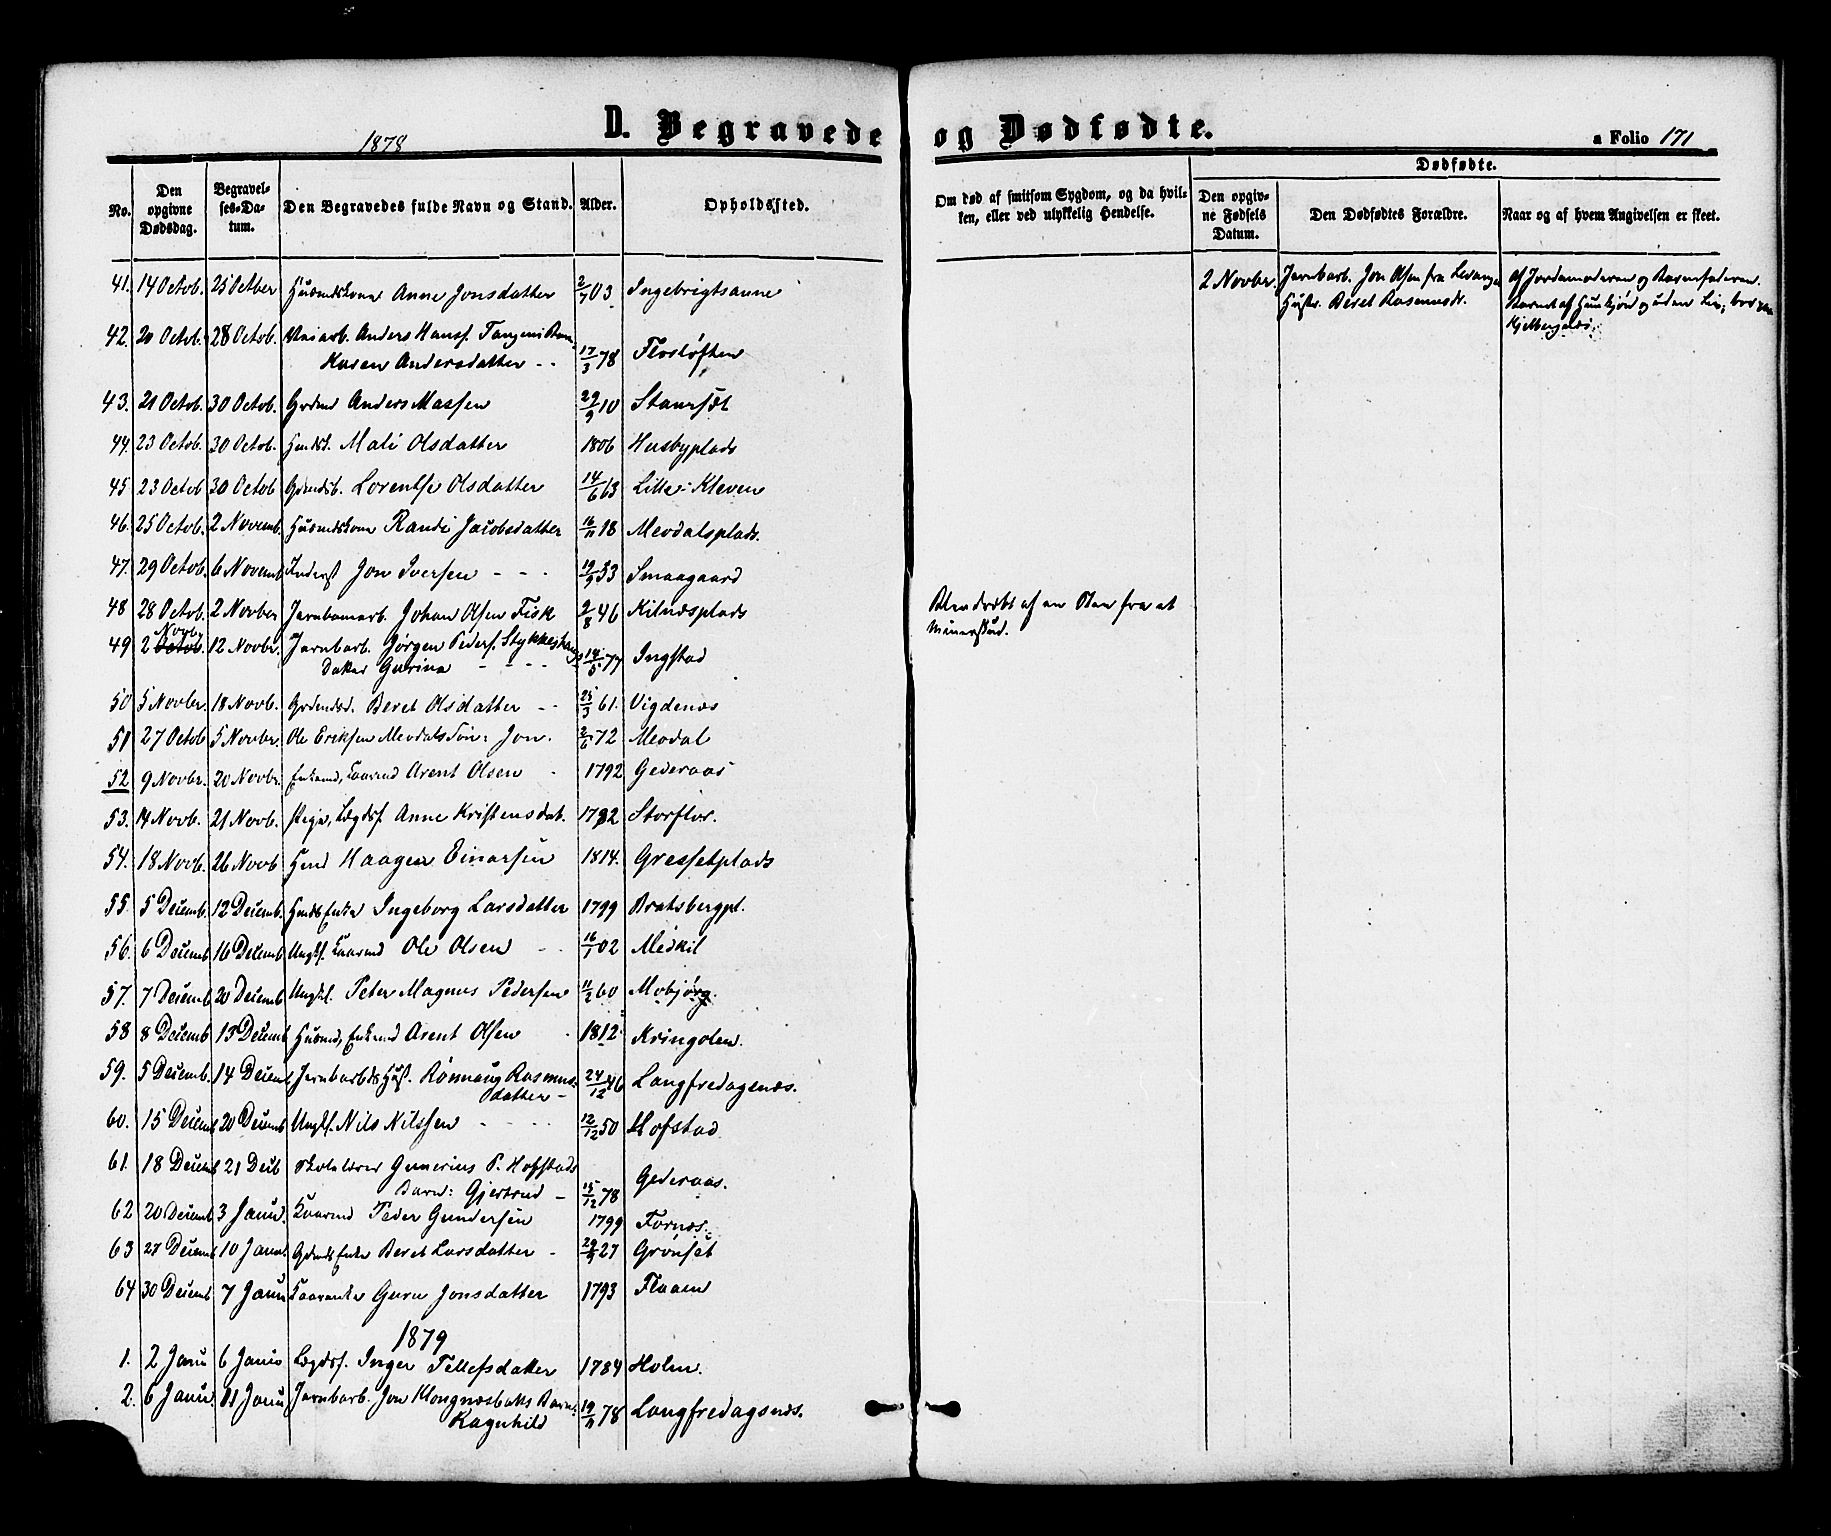 1878
D. Begravede og Dødfødte.
a Folio 171
No. Den opgivne Dødsdag. Begravelses-Datum. Den Begravedes fulde Navn og Stand. Alder. Opholdssted. Om død af smitsom Sygdom, og da hvilken, eller ved ulykkelig Hendelse.
Dødfødte.
Den opgivne Fødsels Datum. Den Dødfødtes Forældre. Naar og af hvem Angivelsen er skeet.
41. 14 Octob. 25 Octber Husmdskone Anne Jonsdatter 2/7 03 Ingebrigtsaune
2 Novbr. Jernbarb. Jon Olsen fra Levanger
Hustr. Beret Rasmusdr.
af Jordemoderen og Barnefaderen.
Barnet af Hunkjøn og uden Liv;
42. 20 Octob. 28 Octob. Anders Hansf. Tangens Barn
Karen Andersdatter - - 17/3 78 Flosløften
43. 21 Octob. 30 Octob. Grdmd Anders Massen 29/9 10 Staursæt
44. 23 Octob. 30 Octob. Mali Olsdatter 1806 Husbyplads
45 23 Octob 30 Octob Lorentse Olsdatter 14/6 63 Lille-Kleven
46. 25 Octob. 2 Novemb. Husmdskone Randi Jacobsdatter 16/11 18 Meodalsplads.
47. 29 Octob. 6 Novemb Inderst Jon Iversen - - - 19/9 33 Smaagaard
48 28 Octob. 2 Novber Jernbanearb. Johan Olsen Fisk 2/8 46 Kilnæsplads
af en Sten fra et
Minerskud.
49 2 Novbr 12 Novbr. Jernbarb. Jørgen Peders.
Datter Gurina - - - - 14/5 77 Ingstad
50 5 Novber. 18 Novb. Beret Olsdatter - - 25/3 61. Vigdenæs
51 27 Octob 5 Novbr. Ole Eriksen Meodals Søn: Jon. 2/6 72 Meodal
52 9 Novbr. 20 Novbr. Enkemd, Kaarmd Arent Olsen - 1792 Gederaas
53. 14 Novb. 21 Novb. Pige, Lægdsf. Anne Kristensdat. Storflor.
54. 18 Novb. 26 Novb Hmd Haagen Einarsen 1814. Gressetplads
55. 5 Decemb. 12 Decemb. Hmds Enke Ingeborg Larsdatter 1799 Bratsbergpl.
56. 6 Decemb 16 Decemb Ungk. Kaarmd Ole Olsen - - 16/1 02 Medkil
57. 7 Decemb 20 Decemb Ungkl. Peter Magnus Pedersen 11/2 60 Mobjørg.
58 8 Decemb 13 Decemb Husmd, Enkemd Arent Olsen - 1812 Kringolen.
59. 5 Decemb. 14 Decemb Jernbarbds Hust. Rønnaug Rasmus-
datter - 24/12 46 Langfredagsnæs.
60. 15 Decemb 20 Decemb Ungk. Nils Nilssen - - - - 12/12 50 Hofstad
61. 18 Decemb 21 Decb Skolelærer Gunerius P. Hofstads
Barn: Gjertrud - 15/12 78 Gederaas.
62 20 Decemb 3 Janu. Kaarmd Peder Gundersen 1799 Fornæs.
63 27 Decemb 10 Janu. Grdmds Enke Beret Larsdatter - 27 Grønset
64 30 Decemb 7 Janu Kaarenke Guru Jonsdatter 1793 Flaaen
1879
1. 2 Janu 6 Janu Lægdsf. Inger Tellefsdatter 1784 Holm.
2. 6 Janu. 11 Janu Jernbarb. Jon Klongnæsbaks Barn:
Ragnhild 19/11 78 Langfredagsnæs.